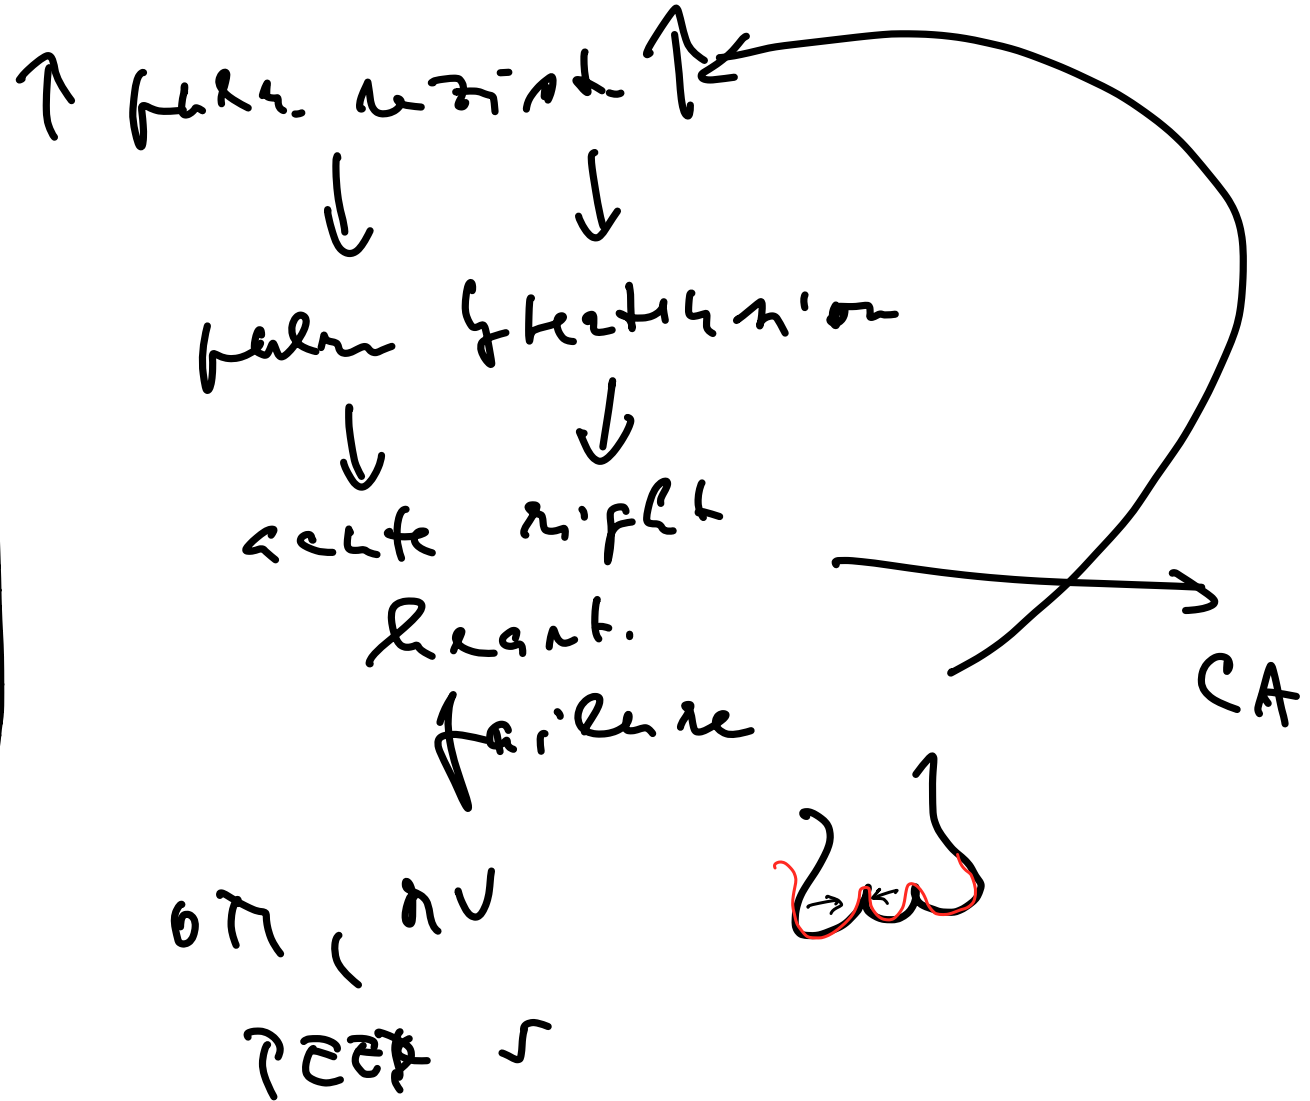 ↑ pulm. rezist. ↑
pulm hypertension
acute right
heart.
failure
CA
OTI, RV
PEEP 5